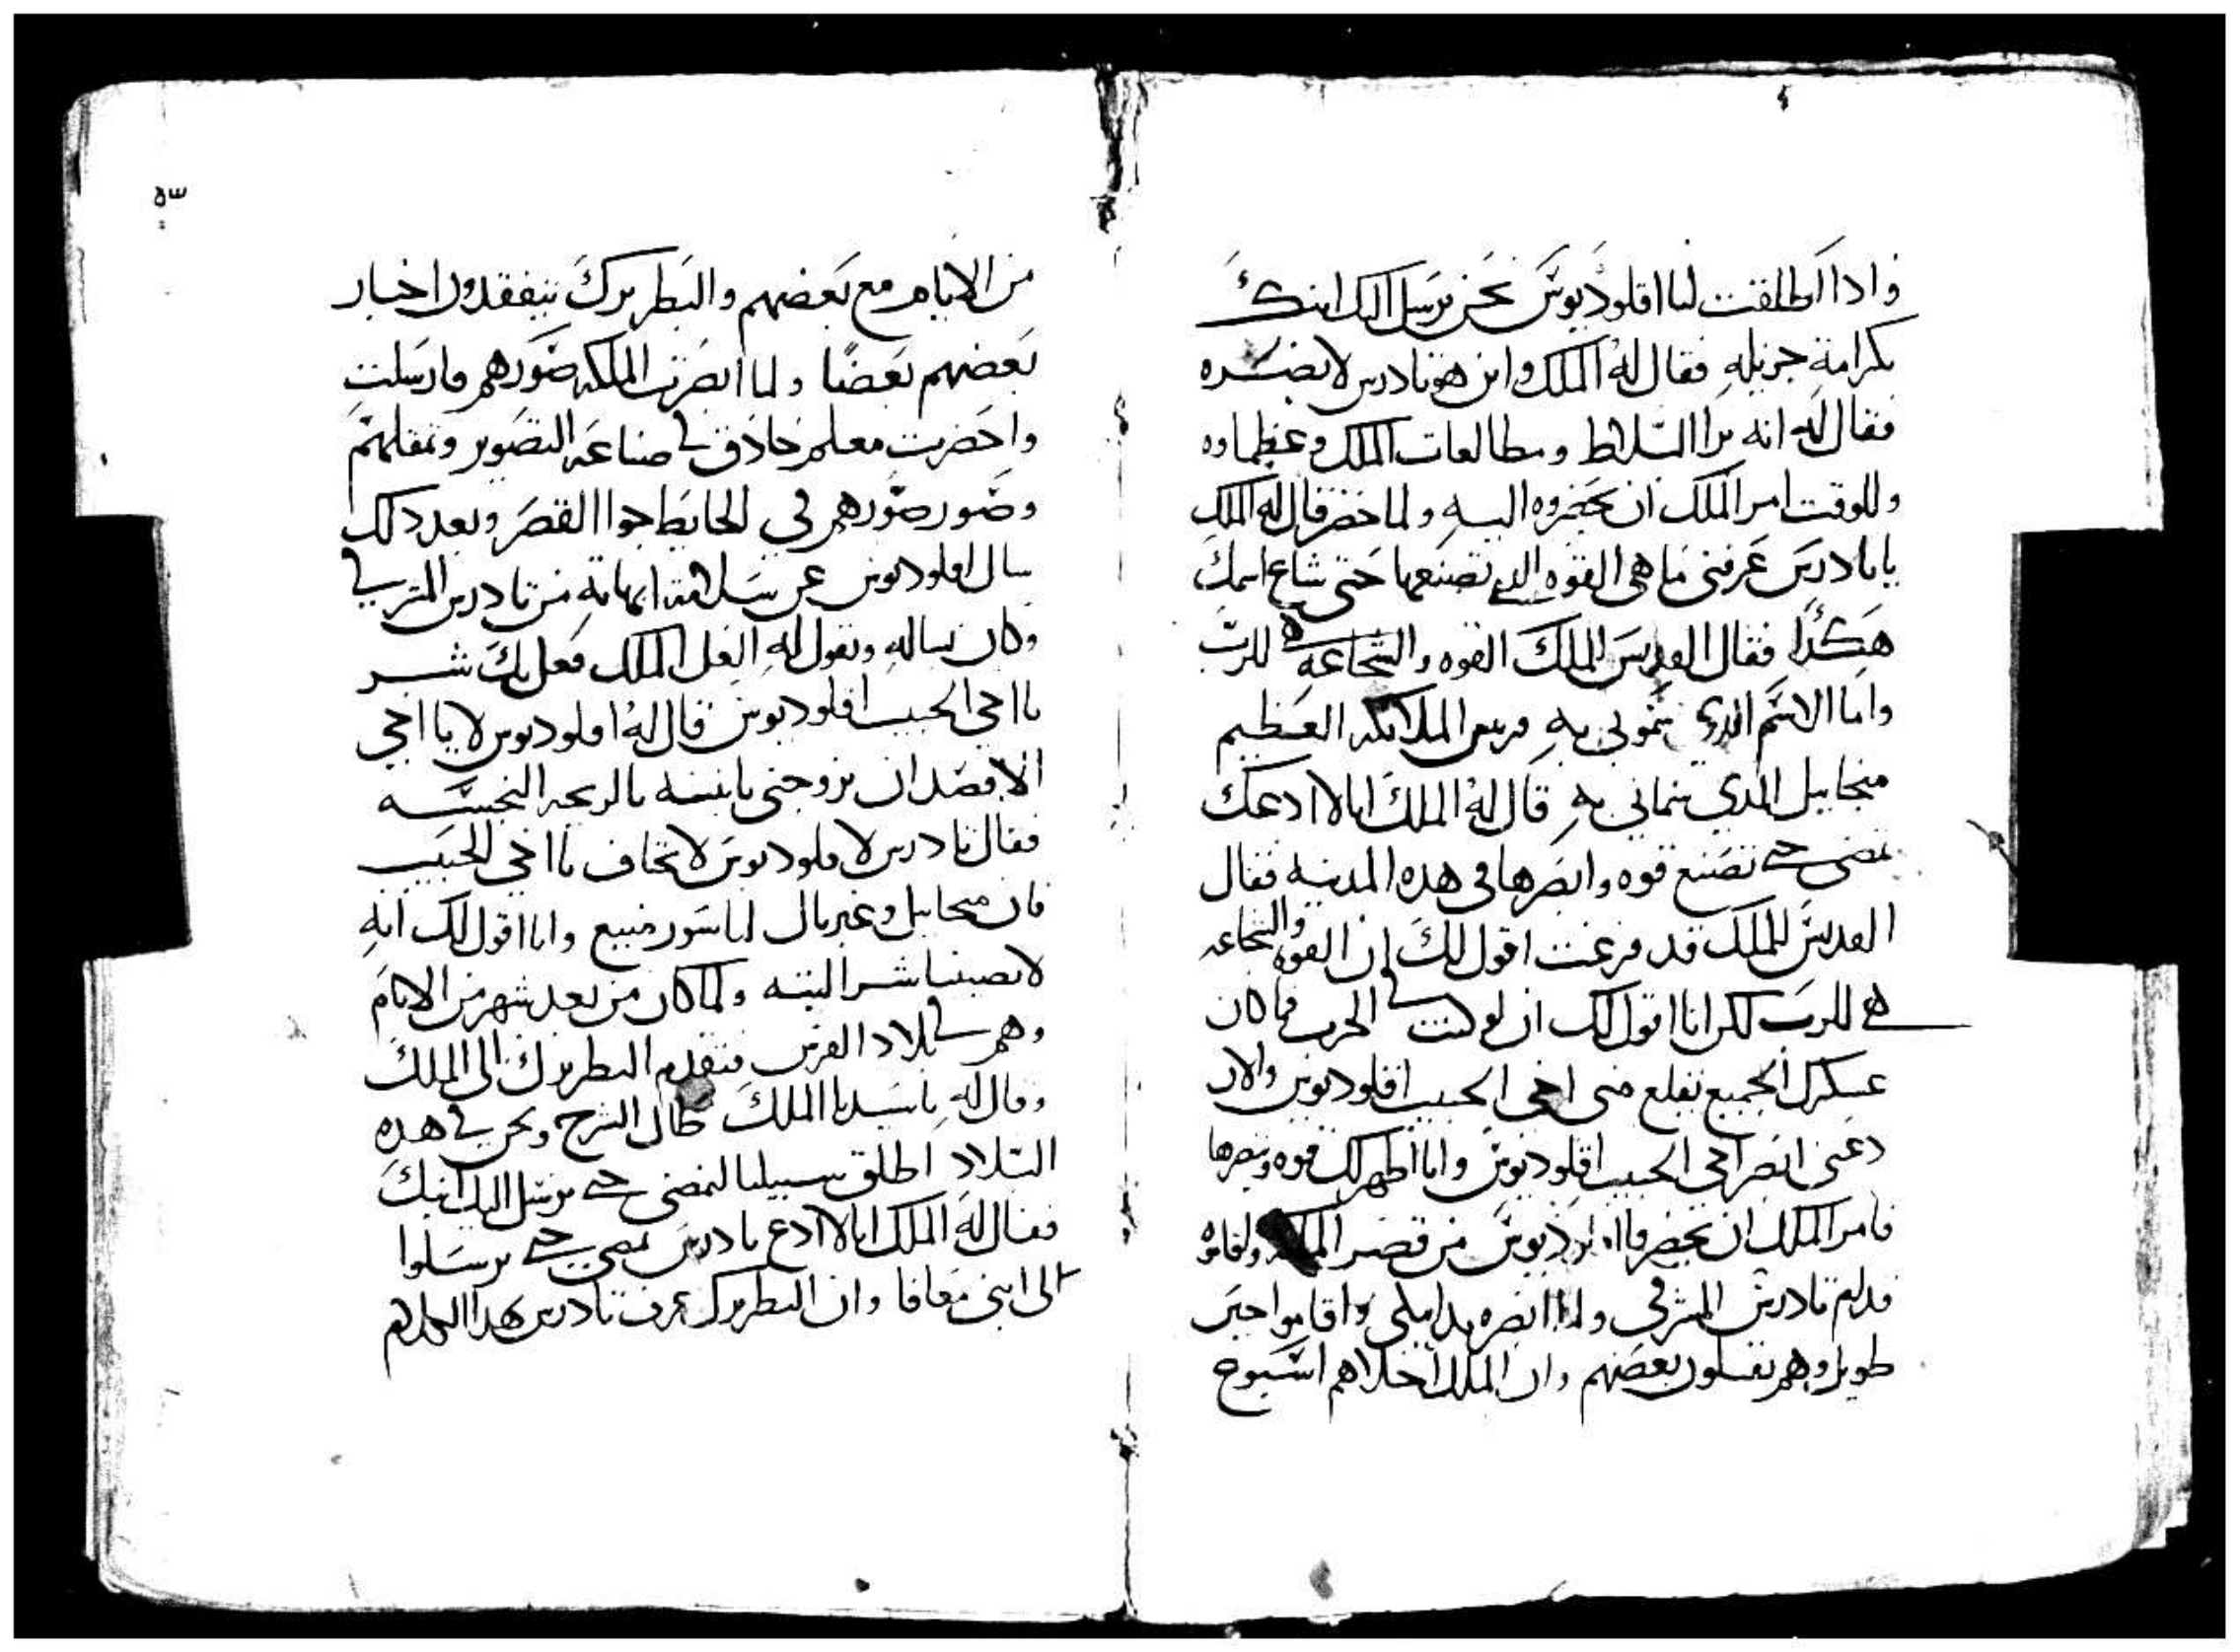 واذا اطلقت لنا اقلوديوس نحن نرسل اليك ابنك
بكرامة جزيله فقال له الملك واين هو تادرس لا بصره
فقال له انه برا البلاط ومطالعات الملك وعظماوه
وللوقت امر الملك ان يحضروه اليه ولما حضر قال له الملك
يا تادرس عرفني ما هى القوه التي تصنعها حتى شاع اسمك
هكذا فقال القديس للملك القوه والشجاعه هى للرب
واما الاسم الذي سموني به فريس الملايكه العظيم
ميخاييل الذي سماني به قال له الملك انا لا ادعك
تمضى حتى تصنع قوه وابصرها في هذه المدينه فقال
القديس للملك قد فرغت اقول لك ان القوه والشجاعه
هى للرب لكن انا اقول لك ان لو كنت في الحرب ما كان
عسكرك الجميع تقلع منى اخى الحبيب اقلوديوس والان
دعنى ابصر اخى الحبيب اقلوديوس وانا اظهر لك قوه وتبصرها
فامر الملك ان يحضروا اقلوديوس من قصر الملكه
قدام تادرس المشرقي ولما ابصره بدا يبكي واقاموا حين
طويل وهم يقبلون بعضهم وان الملك اخلاهم اسبوع
٥٣
من الايام مع بعضهم والبطريرك يتفقدون اخبار
بعضهم بعضا ولما ابصرت الملكه صورهم فارسلت
واحضرت معلم حاذق في صناعة التصوير ونقلهم
وصور صورهم في الحايط جوا القصر وبعد ذلك
سال اقلوديوس عن سلامة ايمانه من تادرس المشرقي
وكان يساله ويقول له لعل الملك فعل بك شر
يا اخى الحبيب اقلوديوس قال له اقلوديوس لا يا اخى
الا قصد ان يزوجنى بابنته بالريحه النجسه
فقال تادرس لاقلوديوس لا تخاف يا اخى الحبيب
فان ميخاييل وغبريال لنا سور منيع وانا اقول لك انه
لا يصيبنا شر البته ولما كان من بعد شهر من الايام
وهم في بلاد الفرس فتقدم البطريرك الى الملك
وقال له يا سيدنا الملك طال الشرح ونحن في هذه
البلاد اطلق سبيلنا لنمضى حتى نرسل اليك ابنك
فقال له الملك انا لا ادع تادرس يمضى حتى يرسلوا
الى ابنى معافا وان البطريرك عرف تادرس هذا الكلام